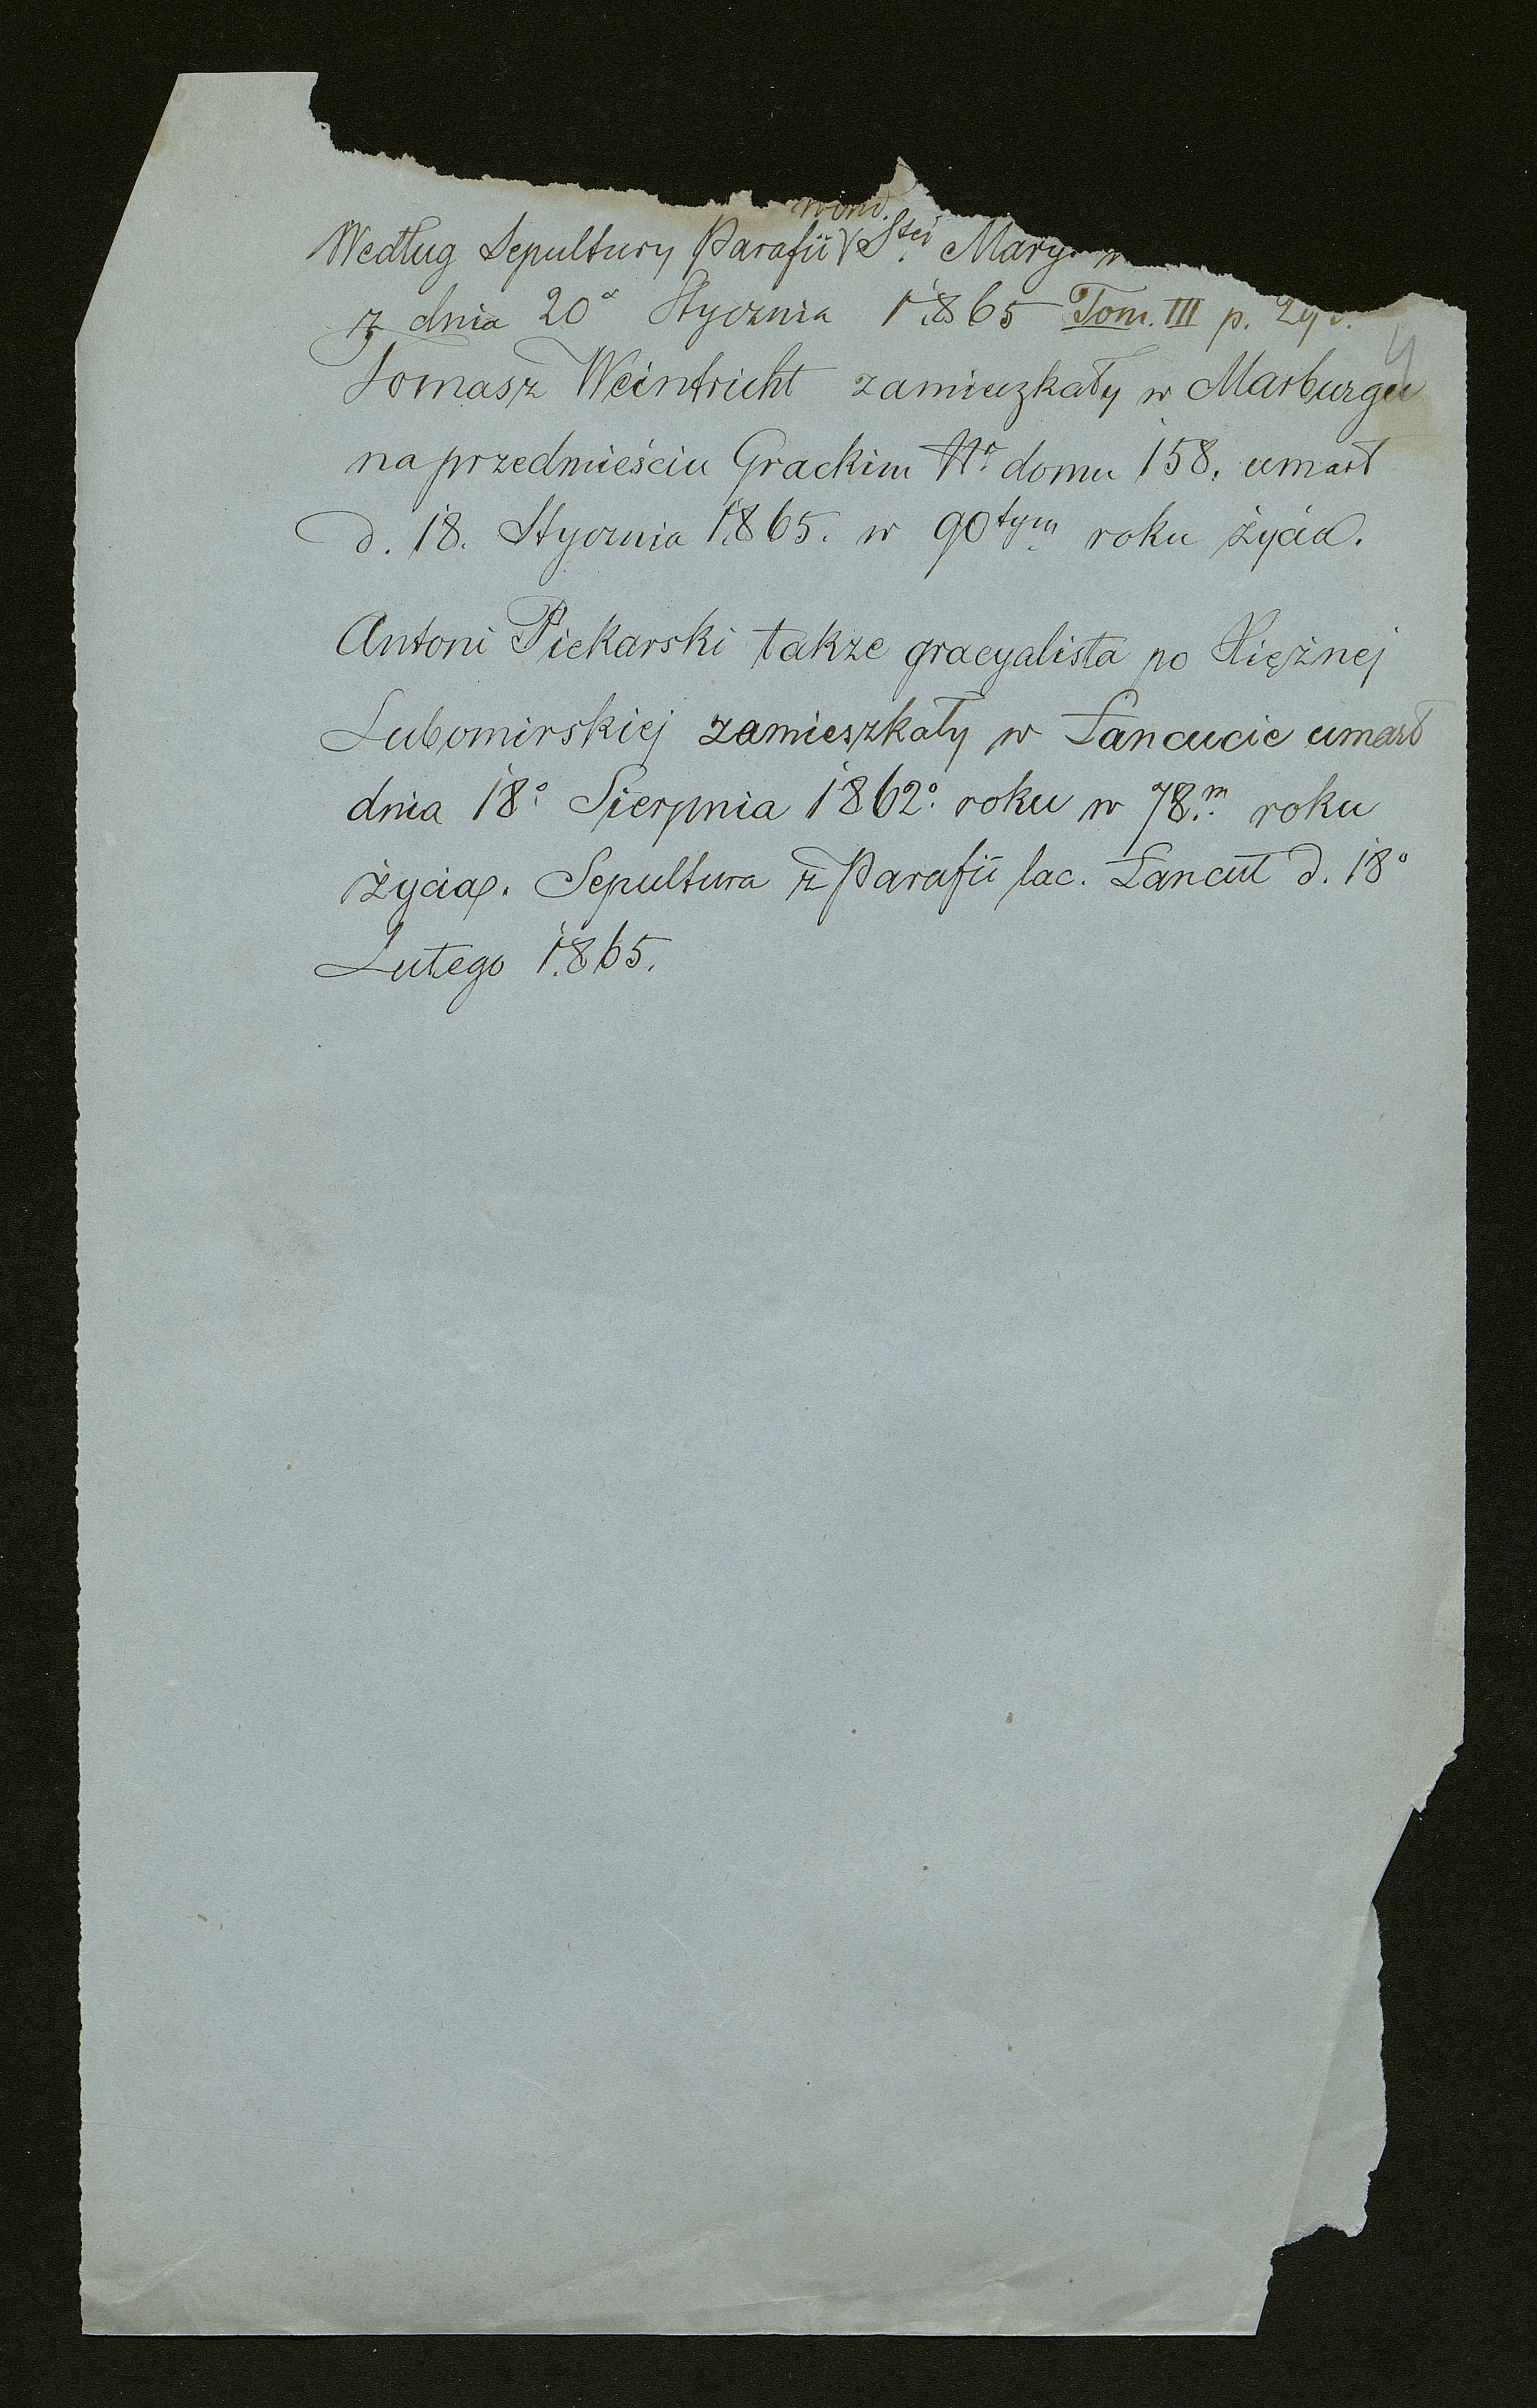 Według Sepultury Parafii Stej Mary
z dnia 20o Stycznia 1865 Tom. III p.
Tomasz Weintricht zamieszkały w Marburgu
na przedmieściu Grackim Nr domu 158. umarł
d. 18. Stycznia 1865. w 90tym roku życia.
Antoni Piekarski takze gracyalista po Xiężnej
Lubomirskiej zamieszkały w Łancucie umarł
dnia 18o Sierpnia 1862o roku w 78.m roku
życia. Sepultura z Parafii łac. Łancut d. 18o
Lutego 1865.